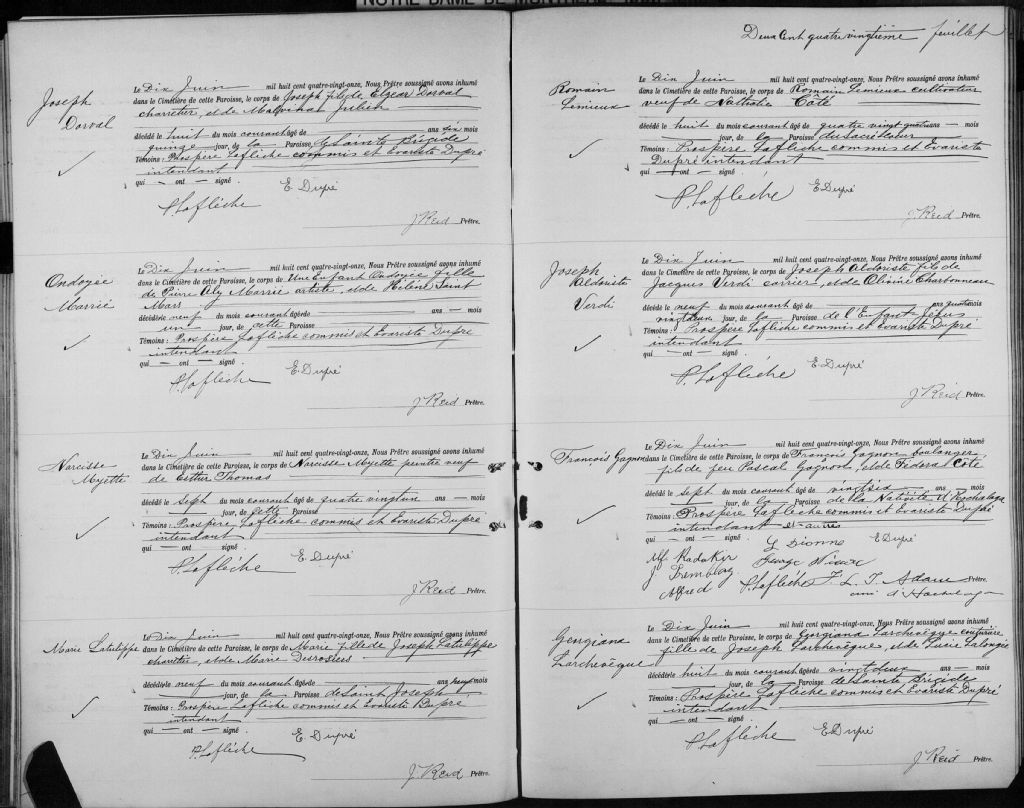 NOTRE DAME DE MONTREAL
Deux Cent quatre vingtième feuillet
Joseph
Dorval
Le Dix Juin mil huit cent quatre-vingt-onze, Nous Prêtre soussigné avons inhumé
dans le Cimetière de cette Paroisse, le corps de Joseph fils de Elzear Dorval
charretier, et de Malvina
décédé le huit du mois courant âgé de ans six mois
quinze jour, de la Paroisse de Sainte Brigide
Témoins : Prospère Laflèche commis et Evariste Dupré
intendant
qui — ont — signé.
E. Dupré
P. Laflèche
J Reid Prêtre.
Ondoyée
Marrié
Le Dix Juin mil huit cent quatre-vingt-onze, Nous Prêtre soussigné avons inhumé
dans le Cimetière de cette Paroisse, le corps de Une Enfant Ondoyée fille
de Pierre Aly Marrié artiste, et de Hélène Saint
Mars
décédé le neuf du mois courant âgé de ans — mois
un jour, de cette Paroisse
Témoins : Prospère Laflèche commis et Evariste Dupré
intendant
qui — ont — signé.
E. Dupré
P. Laflèche
J Reid Prêtre.
Narcisse
Myette
Le Dix Juin mil huit cent quatre-vingt-onze, Nous Prêtre soussigné avons inhumé
dans le Cimetière de cette Paroisse, le corps de Narcisse Myette peintre veuf
de Esther Thomas
décédé le Sept du mois courant âgé de quatre vingt un ans — mois
jour, de cette Paroisse
Témoins : Prospère Laflèche commis et Evariste Dupré
intendant
qui — ont — signé.
E. Dupré
P. Laflèche
J. Reid Prêtre.
Marie Latulippe
Le Dix Juin mil huit cent quatre-vingt-onze, Nous Prêtre soussigné avons inhumé
dans le Cimetière de cette Paroisse, le corps de Marie fille de Joseph Latulippe
charretier, et de Marie Desrosiers
décédé le neuf du mois courant âgé de ans neuf mois
jour, de la Paroisse de Saint Joseph
Témoins : Prospère Laflèche commis et Evariste Dupré
intendant
qui — ont — signé.
E. Dupré
P. Laflèche
J. Reid Prêtre.
Romain
Lemieux
Le Dix Juin mil huit cent quatre-vingt-onze, Nous Prêtre soussigné avons inhumé
dans le Cimetière de cette Paroisse, le corps de Romain Lemieux cultivateur
veuf de Nathalie Côté
décédé le huit du mois courant âgé de quatre vingt quatre ans — mois
jour, de la Paroisse du Sacré Coeur
Témoins : Prospère Laflèche commis et Evariste
Dupré intendant
qui — ont — signé.
E. Dupré
P. Laflèche
J. Reid Prêtre.
Joseph
Aldoriste
Verdi
Le Dix Juin mil huit cent quatre-vingt-onze, Nous Prêtre soussigné avons inhumé
dans le Cimetière de cette Paroisse, le corps de Joseph Aldoriste fils de
Jacques Verdi carrier, et de Olivine Charbonneau
décédé le neuf du mois courant âgé de ans quatre mois
vingt deux jour, de la Paroisse de l'Enfant Jésus
Témoins : Prospère Laflèche commis et Evariste Dupré
intendant
qui — ont — signé.
E. Dupré
P. Laflèche
J. Reid Prêtre.
François Gagnon
Le Dix Juin mil huit cent quatre-vingt-onze, Nous Prêtre soussigné avons inhumé
dans le Cimetière de cette Paroisse, le corps de François Gagnon boulanger,
fils de feu Pascal Gagnon, et de Fedora Côté
décédé le Sept du mois courant âgé de vingt six ans — mois
jour, de la Paroisse de la Nativité d'Hochelaga
Témoins : Prospère Laflèche commis et Evariste Dupré
intendant et autres
qui — ont — signé.
L Dionne
E Dupré
J. Tremblay
Alfred
P. Laflèche
F. L. T. Adam Prêtre.
Georgiana
Larchevêque
Le Dix Juin mil huit cent quatre-vingt-onze, Nous Prêtre soussigné avons inhumé
dans le Cimetière de cette Paroisse, le corps de Georgiana Larchevêque couturière
fille de Joseph Larchevêque, et de Lucie Lalongé
décédé le huit du mois courant âgé de vingt deux ans — mois
jour, de la Paroisse de Sainte Brigide
Témoins : Prospère Laflèche commis et Evariste Dupré
intendant
qui — ont — signé.
E. Dupré
P. Laflèche
J Reid Prêtre.